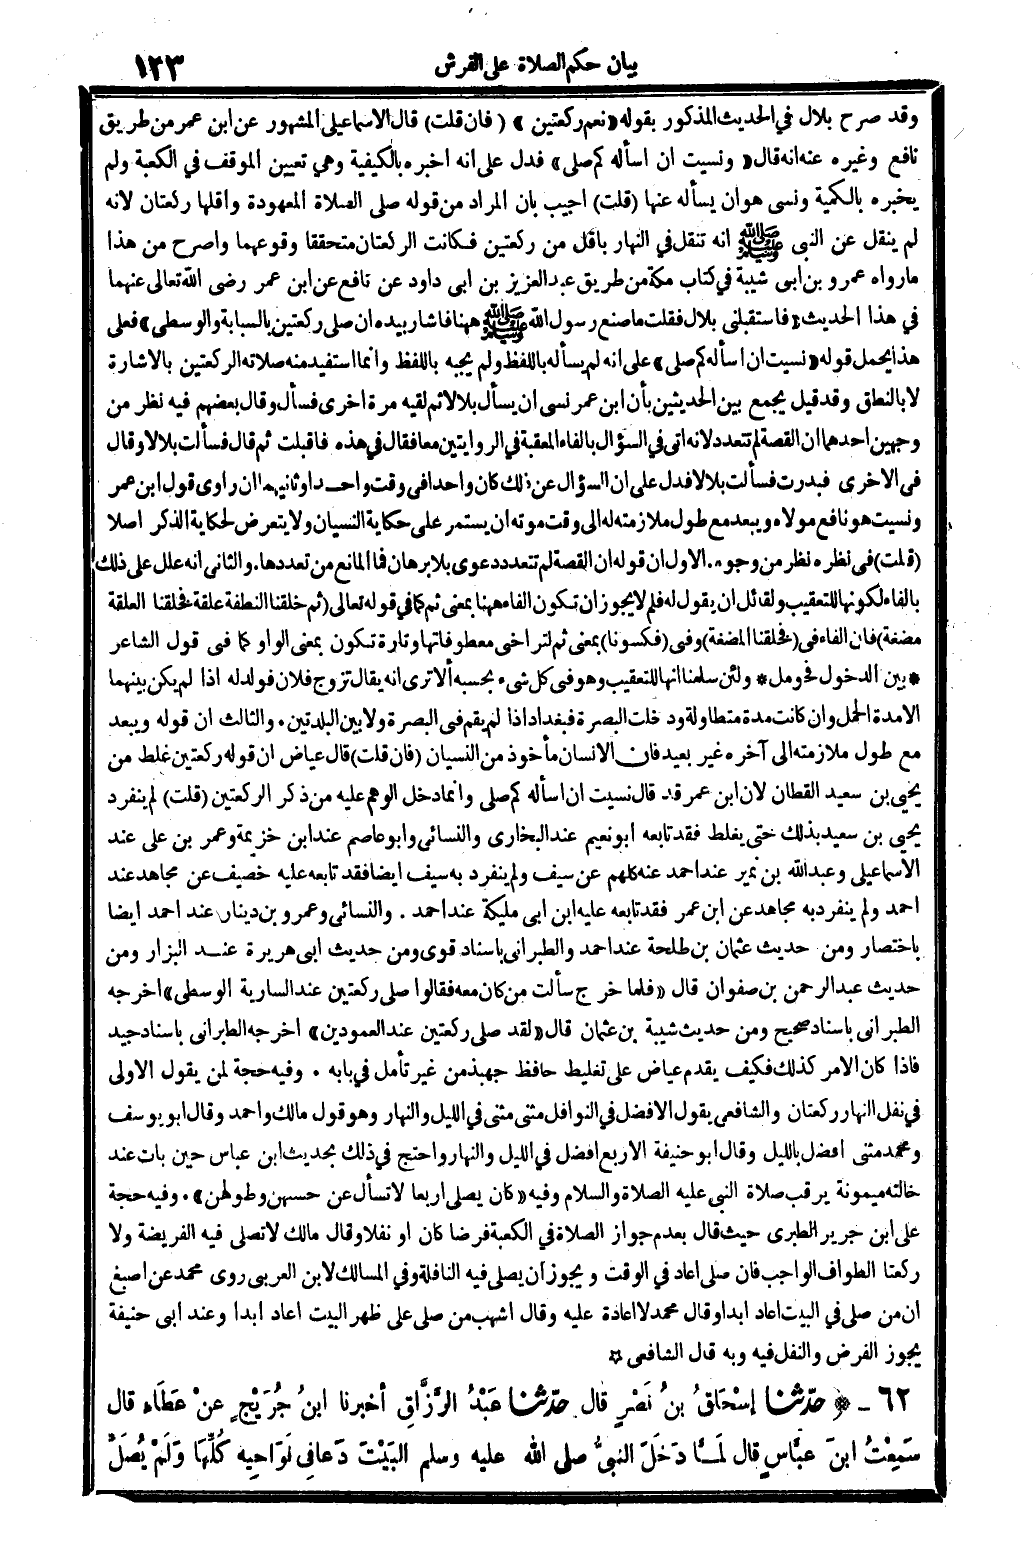 بيان حكم الصلاة على الفرش ١٢٣
وقد صرح بلال في الحديث المذكور بقوله «نعم ركعتين» (فان قلت) قال الاسماعيلى المشهور عن ابن عمر من طريق
نافع وغيره عنه انه قال «ونسيت ان اسأله كم صلى» فدل على انه اخبره بالكيفية وهي تعيين الموقف في الكعبة ولم
يخبره بالكمية ونسى هو ان يسأله عنها (قلت) اجيب بان المراد من قوله صلى الصلاة المعهودة وأقلها ركعتان لانه
لم ينقل عن النبى ﷺ انه تنقل في النهار باقل من ركعتين فكانت الركعتان متحققا وقوعهما واصرح من هذا
مارواه عمر و بن ابى شيبة في كتاب مكة من طريق عبد العزيز بن ابى داود عن نافع عن ابن عمر رضى الله تعالى عنهما
في هذا الحديث «فاستقبلنى بلال فقلت ما صنع رسول الله ﷺ ههنا فاشار بيده ان صلى ركعتين بالسبابة والوسطى» فعلى
هذا يحمل قوله «نسيت ان اسأله كم صلى» على انه لم يسأله باللفظ ولم يجبه باللفظ وانما استفيد منه صلاته الركعتين بالاشارة
لا بالنطاق وقد قيل يجمع بين الحديثين بأن ابن عمر نسى ان يسأل بلالا ثم لقيه مرة اخرى فسأل وقال بعضهم فيه نظر من
وجهين احدهما ان القصة لم تتعدد لانه اتى في السؤال بالفاء المعقبة في الروايتين معا فقال في هذه فاقبلت ثم قال فسألت بلالا وقال
فى الاخرى فبدرت فسألت بلالا فدل على ان السؤال عن ذلك كان واحدا فى وقت واحد وثانيهما ان راوى قول ابن عمر
ونسيت هو نافع مولاه ويبعد مع طول ملازمته له الى وقت موته ان يستمر على حكاية النسيان ولا يتعرض لحكاية الذكر اصلا
(قلت) فى نظره نظر من وجوه . الاول ان قوله ان القصة لم تتعدد دعوى بلا برهان فما المانع من تعددها . والثانى انه علل على ذلك
بالفاء لكونها للتعقيب ولقائل ان يقول له فلم لا يجوز ان تكون الفاء ههنا بمعنى ثم كما في قوله تعالى (ثم خلقنا النطفة علقة فخلقنا العلقة
مضغة) فان الفاء فى (فخلقنا المضغة) وفى (فكسونا) بمعنى ثم لتراخى معطوفاتها وتارة تكون بمعنى الواو كما فى قول الشاعر
* بين الدخول فحومل * ولئن سلمنا انها للتعقيب وهو فى كل شىء بحسبه ألا ترى انه يقال تزوج فلان فولد له اذا لم يكن بينهما
الا مدة الحمل وان كانت مدة متطاولة ودخلت البصرة فبغداد اذا لم يقم فى البصرة ولا بين البلدتين . والثالث ان قوله ويبعد
مع طول ملازمته الى آخره غير بعيد فان الانسان مأخوذ من النسيان (فان قلت) قال عياض ان قوله ركعتين غلط من
يحيى بن سعيد القطان لان ابن عمر قد قال نسيت ان اسأله كم صلى وانما دخل الوهم عليه من ذكر الركعتين (قلت) لم ينفرد
يحيى بن سعيد بذلك حتى يغلط فقد تابعه ابو نعيم عند البخارى والنسائى وابو عاصم عند ابن خزيمة وعمر بن على عند
الاسماعيلى وعبد الله بن نمير عند احمد عنه كلهم عن سيف ولم ينفرد به سيف ايضا فقد تابعه عليه خصيف عن مجاهد عند
احمد ولم ينفرد به مجاهد عن ابن عمر فقد تابعه عليه ابن ابى مليكة عند احمد . والنسائى وعمرو بن دينار عند احمد ايضا
باختصار ومن حديث عثمان بن طلحة عند احمد والطبرانى باسناد قوى ومن حديث ابى هريرة عند البزار ومن
حديث عبد الرحمن بن صفوان قال «فلما خرج سألت من كان معه فقالوا صلى ركعتين عند السارية الوسطى» اخرجه
الطبرانى باسناد صحيح ومن حديث شيبة بن عثمان قال «لقد صلى ركعتين عند العمودين» اخرجه الطبرانى باسناد جيد
فاذا كان الامر كذلك فكيف يقدم عياض على تغليط حافظ جهبذ من غير تأمل في بابه . وفيه حجة لمن يقول الاولى
في نفل النهار ركعتان والشافعى يقول الافضل في النوافل مثنى مثنى في الليل والنهار وهو قول مالك واحمد وقال ابو يوسف
ومحمد مثنى افضل بالليل وقال ابو حنيفة الاربع افضل في الليل والنهار واحتج في ذلك بحديث ابن عباس حين بات عند
خالته ميمونة يرقب صلاة النبى عليه الصلاة والسلام وفيه «كان يصلى اربعا لا تسأل عن حسنهن وطولهن» . وفيه حجة
على ابن جرير الطبرى حيث قال بعدم جواز الصلاة في الكعبة فرضا كان او نفلا وقال مالك لا تصلى فيه الفريضة ولا
ركعتا الطواف الواجب فان صلى اعاد في الوقت ويجوز أن يصلى فيه النافلة وفي المسالك لابن العربى روى محمد عن اصبغ
ان من صلى في البيت اعاد ابدا وقال محمد لا اعادة عليه وقال اشهب من صلى على ظهر البيت اعاد ابدا وعند ابى حنيفة
يجوز الفرض والنفل فيه وبه قال الشافعى ☆
٦٢ - ﴿ حدثنا إسْحَاقُ بنُ نَصْرٍ قال حدثنا عَبْدُ الرَّزَّاقِ أخبرنا ابنُ جُرَيْجٍ عنْ عَطَاءٍ قال
سَمِعْتُ ابنَ عبَّاسٍ قال لَمَّا دَخَلَ النبيُّ صلى الله عليه وسلم البَيْتَ دَعا فِي نَوَاحِيهِ كُلِّهَا وَلَمْ يُصَلِّ